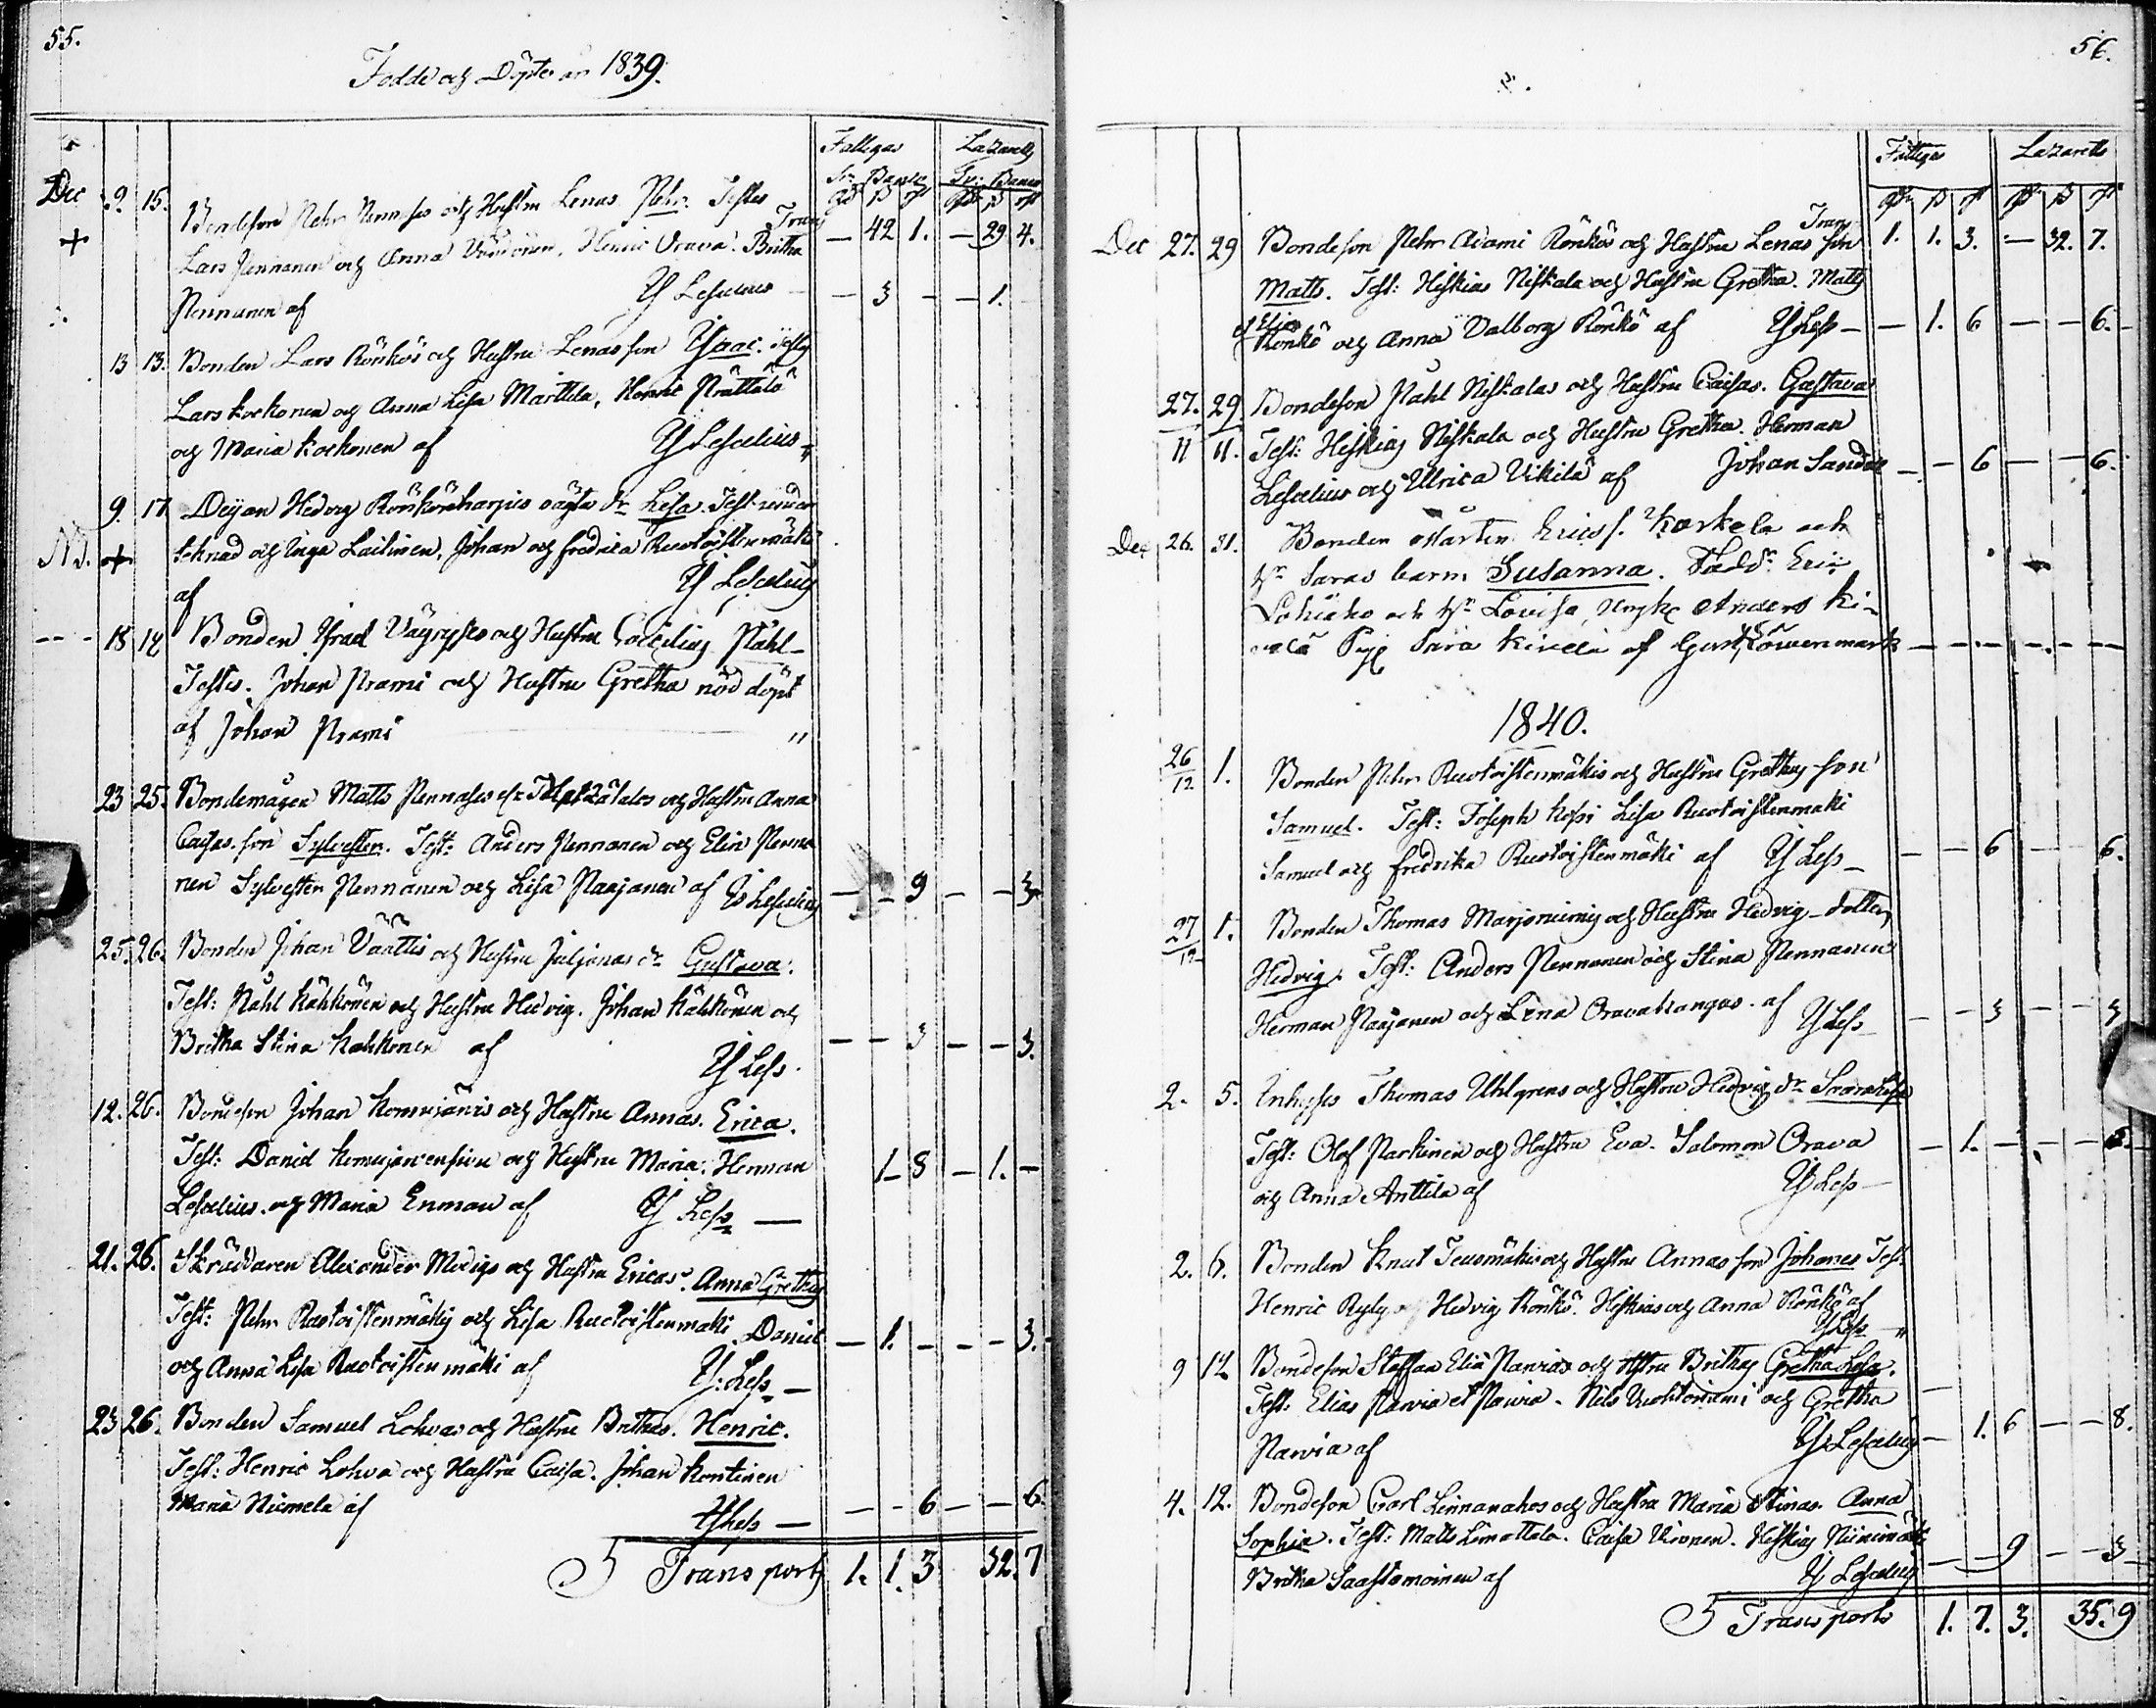 55.
Födde och Döpte år 1839.
Fattigas Lazaretts
Sr: Banco Sr: Banco
Dec 9. 15. Bondeson Pehr Pennases och Hustru Lenas Pehr. Testes
Trans — 42 1. — 29 4.
+ Lars Pennanen och Anna Orava. Britha
Pennanen af Y Lescelius — — 3 — — 1.
13 13. Bonden Lars Rönkös och Hustru Lenas son Ysaac. Testes
Lars Kockonen och Anna Lisa Marttila, Henric Prättälä
och Maria Kockonen af Y Lescelius
9. 17 Deijan Hedvig Rönkönharjus oägta dr Lisa. Test:
N. + och Inga Laitinen, Johan och Fredrica Ruotoistenmäki
af Y Lescelius
18 18 Bonden Israel Väyryses och Hustru Cecilias Påhl
Testes. Johan Prami och Hustru Gretha nöd döpt
af Johan Prami "
23 25. Bondemågen Matts Pennases och Hustru Anna
Caisas son Sylvester. Test: Anders Pennanen och Elin Penna
nen Sylvester Pennanen och Lisa Paajanen af Y Lescelius — — 9 — — 3
25. 26. Bonden Johan Väättis och Hustru Juljanas dr Gustava.
Test: Påhl Kähkönen och Hustru Hedvig. Johan Kähkönen och
Britha Stina Kähkönen af Y Less. — — 3 — — 3.
12. 26. Bondeson Johan Komujärvis och Hustru Annas. Erica.
Test: David och Hustru Maria. Herman 1 8 — 1. —
Lescelius och Maria Enman af Y Less —
21. 26. Skräddaren Alexander Modigs och Hustru Ericas. Anna Gretha
Test: Pehr Ruotoistenmäki och Lisa Ruotoistenmäki Daniel — 1. — — — 3.
och Anna Lisa Ruotoistenmäki af Y. Less —
23 26. Bonden Samuel Lohvas och Hustru Brithas. Henric.
Test: Henric Lohva och Hustru Caisa. Johan Kontinen
Maria Niemelä af Y Less — — — 6 — — 6
Transport 1. 1. 3 32. 7
56.
Fattigas Lazaretts
Trans
Dec 27. 29 Bondeson Pehr Adami Rönkös och Hustru Lenas son 1. 1. 3. — 32. 7.
Matts. Test: Heskias Niskala och Hustru Gretha. Matts
Elias
Rönkö och Anna Valborg Rönkö af Y Less — — 1. 6 — — 6.
27. 29 Bondeson Påhl Niskalas och Hustru Caisas. Gustava
11 11. Test: Heskias Niskala och Hustru Gretha. Herman
Lescelius och Ulrica Vikilä af Johan Sandel — — 6 — — 6.
Dec 26. 31. Bonden Mårten Ericss. Karkela och
Hr Saras barn Susanna. Fadd: Eric
och Hr Lovisa, Yngl. Anders Ki-
velä Pig. Sara Kivelä af Gust. Löwenmark
1840.
26/12 1. Bonden Pehr Ruotoistenmäkis och Hustru Grethas son
Samuel. Test: Joseph Kopsi Lisa Ruotoistenmäki
Samuel och Fredrika Ruotoistenmäki af Y Less — — — 6 — — 6.
27/12 1. Bonden Thomas Marjoniemis och Hustru Hedvig dotter
Hedvig. Test: Anders Pennanen och Stina Pennanen
Herman Paajanen och Lena Oravakangas af Y Less — — — 3 — — 3
2. 5. Inhyses Thomas Uhlgrens och Hustru Hedvig dr Sara Lisa
Test: Olof Parkinen och Hustru Eva. Salomon Orava — 1. — — — 6.
och Anna Anttila af Y Less —
2. 6. Bonden Knut Teusmäkis och Hustru Annas son Johanes Test:
Henric Ryly och Hedvig Rönkö. Heskias och Anna Rönkö af
Y Less "
9 12 Bondeson Staffan Elia Parvias och Hustru Brithas Gretha Lisa.
Test: Elias Parvia et Parvia. Nils Vuohtoniemi och Gretha
Parvia af Y Lescelius — 1. 6 — — 8.
4. 12. Bondeson Carl Linnanahos och Hustru Maria Stinas. Anna
Sophia. Test: Matts Limattala. Caisa Kivonen. Heskias Niinimäki
Britha Saastamoinen af Y Lescelius — — 9 — — 3
Transport 1. 7. 3. 35. 9